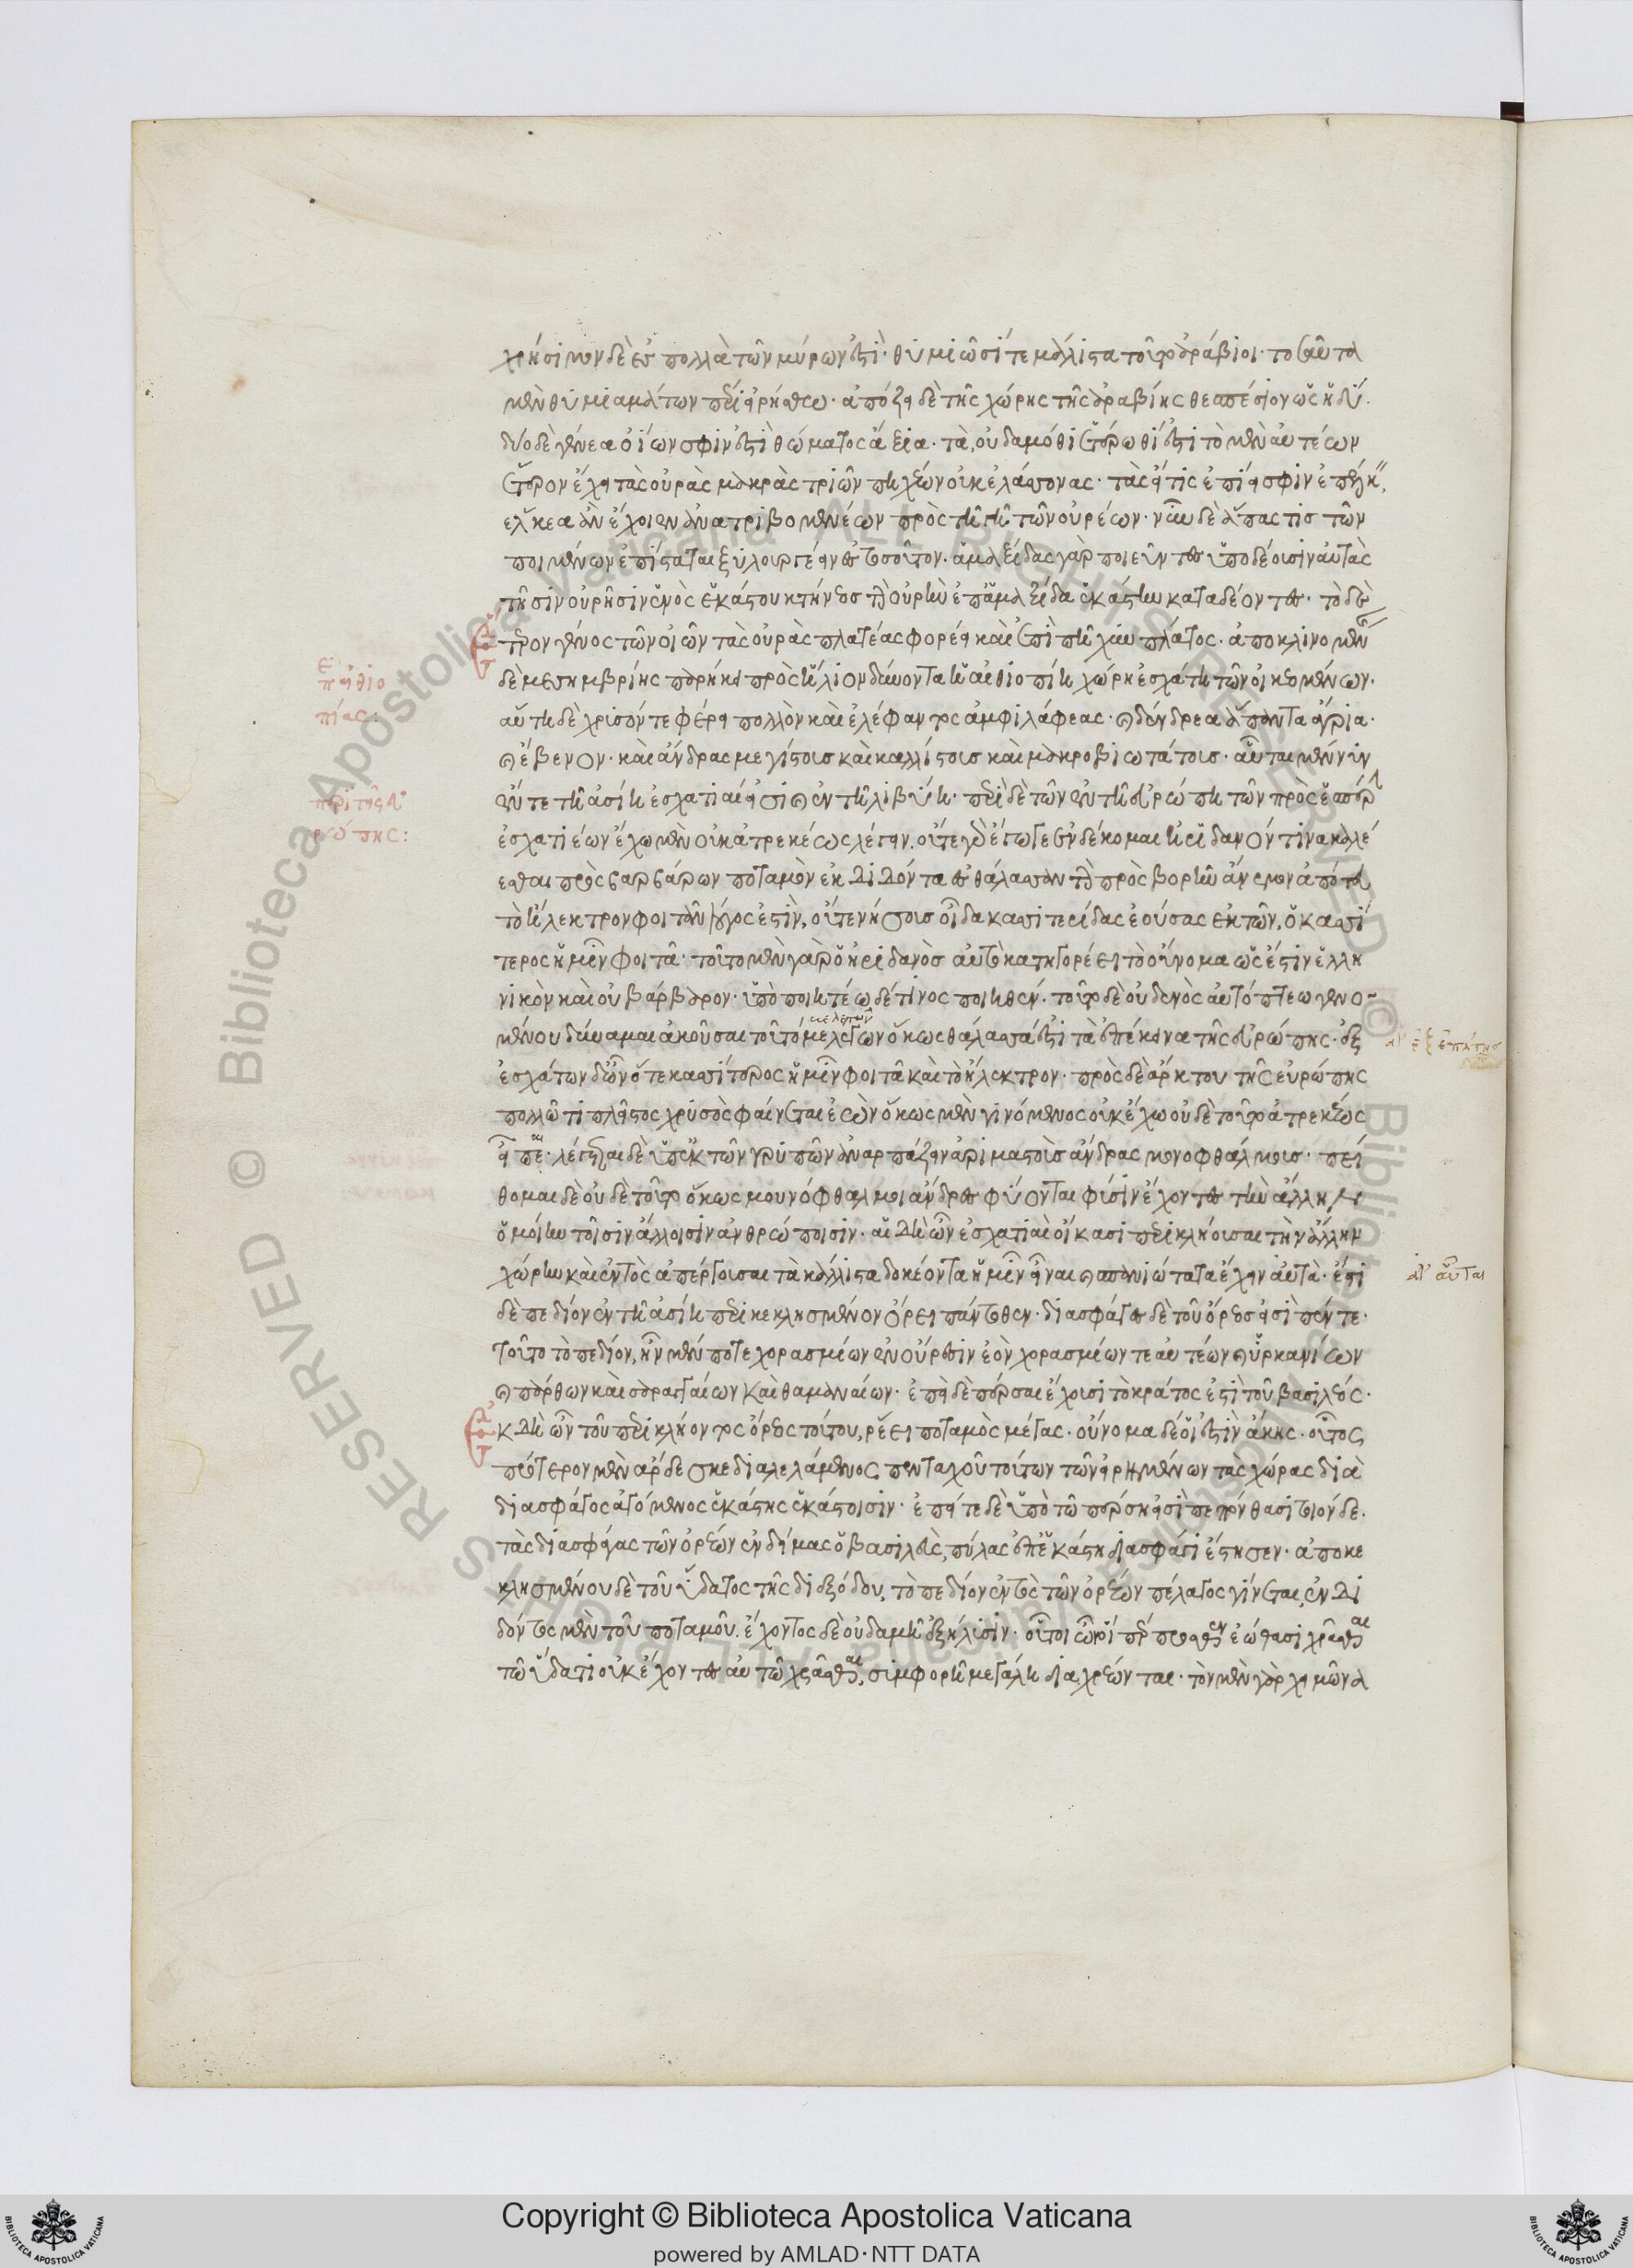 χρήσιμον δὲ ἐς πολλὰ τῶν μύρων ἐστί· θυμιῶσί τε μάλιστα τοῦτο ἀράβιοι· τοσαῦτα
μὲν θυμιαμάτων πέρι εἰρήσθω· ἀπόζει δὲ τῆς χώρης τῆς ἀραβίης θεσπέσιον ὡς ἡδύ.
δύο δὲ γένεα ὀίων σφιν ἐστὶ θώματος ἄξια· τὰ, οὐδαμόθι ἑτέρωθί ἐστι τὸ μὲν αὐτέων
ἕτερον ἔχει τὰς οὐρὰς μακρὰς τριῶν πηχέων οὐκ ἐλάσσονας· τὰς εἴ τις ἐπίει σφιν ἐπέλκ
ἕλκεα ἂν ἔχοιεν ἀνατριβομενέων πρὸς τῆ γῆ τῶν οὐρέων· νῦν δὲ ἅπας τις τῶν
ποιμένων ἐπίσταται ξυλουργέειν ἐς τοσοῦτον· ἁμαξίδας γὰρ ποιεῦντες ὑποδέουσιν αὐτὰς
τῆσιν οὐρῆσιν ἑνὸς ἑκάστου κτήνεος τὴν οὐρὴν ἐπ ἁμαξίδα ἑκάστην καταδέοντες· τὸ δὲ ἕ
τερον γένος τῶν οἰῶν τὰς οὐρὰς πλατέας φορέει καὶ ἐπὶ πῆχυν πλάτος· ἀποκλινομένης
δὲ μεσημβρίης παρήκει πρὸς ἥλιον δύνοντα ἡ αἰθιοπίη χώρη ἐσχάτη τῶν οἰκεομένων·
ει
π αἰθιο
πίας:
αὕτη δὲ χρυσόν τε φέρει πολλὸν καὶ ἐλέφαντας ἀμφιλαφέας· καὶ δένδρεα πάντα ἄγρια·
καὶ ἔβενον· καὶ ἄνδρας μεγίστους καὶ καλλίστους καὶ μακροβιωτάτους· αὗται μέν νιν
ἔν τε τῆ ἀσίη ἐσχατιαί εἰσι καὶ ἐν τῆ λιβύη· περὶ δὲ τῶν ἐν τῆ εὐρώπη τῶν πρὸς ἑσπέρην
περὶ τῆς εὐ
ρώπης:
ἐσχατιέων ἔχω μὲν οὐκ ἀτρεκέως λέγειν. οὔτε γὰρ ἔγωγε ἐνδέκομαι ἠριδανόν τινα καλέ
εσθαι πρὸς βαρβάρων ποταμὸν ἐκδιδόντα ἐς θάλασσαν τὴν πρὸς βορῆν ἄνεμον ἀπό τευ
τὸ ἤλεκτρον φοιτᾶν λόγος ἐστὶν, οὔτε νήσους οἶδα κασσιτερίδας ἐούσας ἐκ τῶν, ὁ κασσί
τερος ἡμῖν φοιτᾶ· τοῦτο μὲν γὰρ ὁ ἠριδανὸς αὐτὸ κατηγορέει τὸ οὔνομα ὡς ἔστιν ἑλλη
νικὸν καὶ οὐ βάρβαρον· ὑπὸ ποιητέω δέ τινος ποιηθέν· τοῦτο δὲ οὐδενὸς αὐτόπτεω γενο-
μένου δύναμαι ἀκοῦσαι τοῦτο μελετῶν ὅκως θάλασσά ἐστι τὰ ἐπέκεινα τῆς εὐρώπης· ἐξ
ἐσχάτων δ ὦν ὅ τε κασσίτερος ἡμῖν φοιτᾶ καὶ τὸ ἤλεκτρον· πρὸς δὲ ἄρκτου τῆς εὐρώπης
πολλῶ τι πλῆστος χρυσὸς φαίνεται ἐὼν ὅκως μὲν γινόμενος οὐκ ἔχω οὐδὲ τοῦτο ἀτρεκέως
εἶπαι· λέγεται δὲ ὑπὲκ τῶν γρυπῶν ἁρπάζειν ἀριμασποὺς ἄνδρας μονοφθάλμους· πεί
θομαι δὲ οὐδὲ τοῦτο ὅκως μουνόφθαλμοι ἄνδρες φύονται φύσιν ἔχοντες τὴν ἄλλην
ὁμοίην τοῖσιν ἄλλοισιν ἀνθρώποισιν· αἱ δὴ ὦν ἐσχατιαὶ οἴκασι περικλήουσαι τὴν ἄλλην
χώρην καὶ ἐντὸς ἀπέργουσαι τὰ κάλλιστα δοκέοντα ἡμῖν εἶναι καὶ σπανιώτατα ἔχειν αὐτὰ· ἔστι
αὗται
δὲ πεδίον ἐν τῆ ἀσίη περικεκλησμένον ὄρει πάντοθεν· διασφάγες δὲ τοῦ ὄρεος εἰσὶ πέντε·
τοῦτο τὸ πεδίον, ἦν μέν ποτε χορασμίων ἐν οὔρεσιν ἐὸν χορασμίων τε αὐτέων καὶ ὑρκανίων
καὶ πάρθων καὶ σαραγγαίων καὶ θαμαναίων· ἐπεὶ δὲ πέρσαι ἔχουσι τὸ κράτος ἐστὶ τοῦ βασιλέος·
ἐκ δὴ ὦν τοῦ περικλήοντος ὄρεος τούτου, ῥέει ποταμὸς μέγας· οὔνομα δέ οἵ ἐστὶν ἄκης· οὗτος
πρότερον μὲν ἄρδεσκε διαλελαμμένος πενταχοῦ τούτων τῶν εἰρημένων τὰς χώρας διὰ
διασφάγος ἀγόμενος ἑκάστης ἑκάστοισιν· ἐπείτε δὲ ὑπὸ τῶ πέρση εἰσὶ πεπόνθασι τοιόνδε·
τὰς διασφάγας τῶν ὀρέων ἐνδείμας ὁ βασιλεὺς, πύλας ἐπ ἑκάστη διασφάγι ἔστησεν· ἀποκε
κλησμένου δὲ τοῦ ὕδατος τῆς διεξόδου, τὸ πεδίον ἐντὸς τῶν ὀρέων πέλαγος γίνεται, ἐνδι
δόντος μὲν τοῦ ποταμοῦ. ἔχοντος δὲ οὐδαμῆ ἐξήλυσιν· οὗτοι ὦν οἵπερ πρόσθεν ἐώθασι χρᾶσθαι
τῶ ὕδατι οὐκ ἔχοντες αὐτῶ χρᾶσθαι, συμφορῆ μεγάλη διαχρέωνται· τὸν μὲν γὰρ χειμῶνα
© Biblioteca Apostolica Vaticana ALL RIGHTS RESERVED
Copyright © Biblioteca Apostolica Vaticana
powered by AMLAD·NTT DATA
BIBLIOTECA APOSTOLICA VATICANA
BIBLIOTECA APOSTOLICA VATICANA